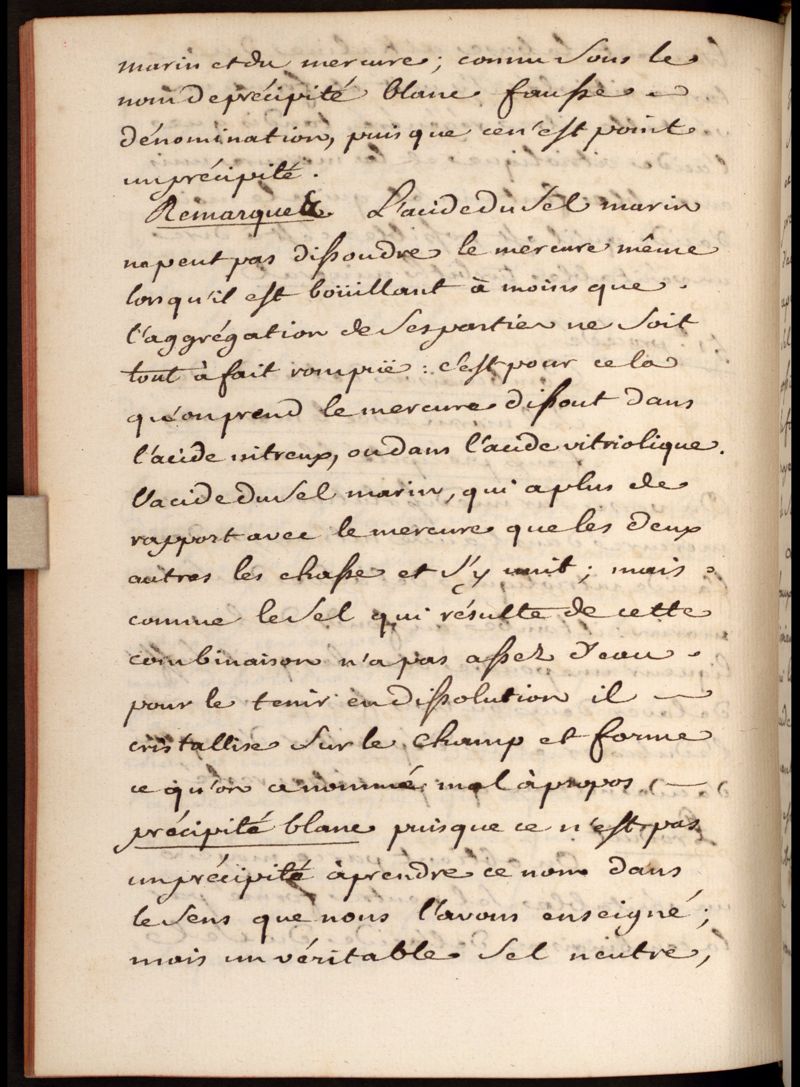 marin et du mercure; connu sous le
nom de précipité blanc fausse
dénomination, puis que ce n'est point
un précipité.
Remarques. L'acide du Sel marin
ne peut pas dissoudre le mercure même
lors qu'il est boüillant à moins que
l'aggrégation de ses parties ne soit
tout à fait rompüe : c'est pour cela
qu'on prend le mercure dissout dans
l'acide nitreux, ou dans l'acide vitriolique.
L'acide du Sel marin, qui a plus de
rapport avec le mercure que les deux
autres les chasse et s'y unit; mais
comme le Sel qui résulte de cette
combinaison n'a pas assez d'eau
pour le tenir en dissolution il
cristallise sur le champ et forme
ce qu'on a nommé mal à propos
précipité blanc puisque ce n'est pas
un précipité à prendre ce nom dans
le sens que nous l'avons enseigné;
mais un véritable Sel neutre,